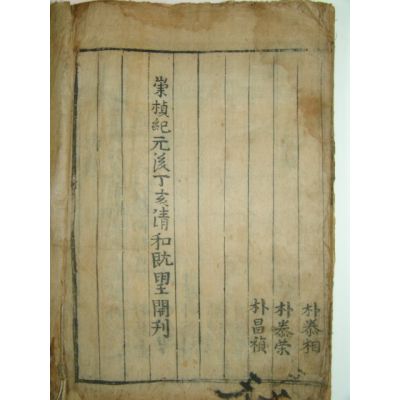 朴泰相
朴泰榮
朴昌禎
崇禎紀元後丁亥清和旣望開刊